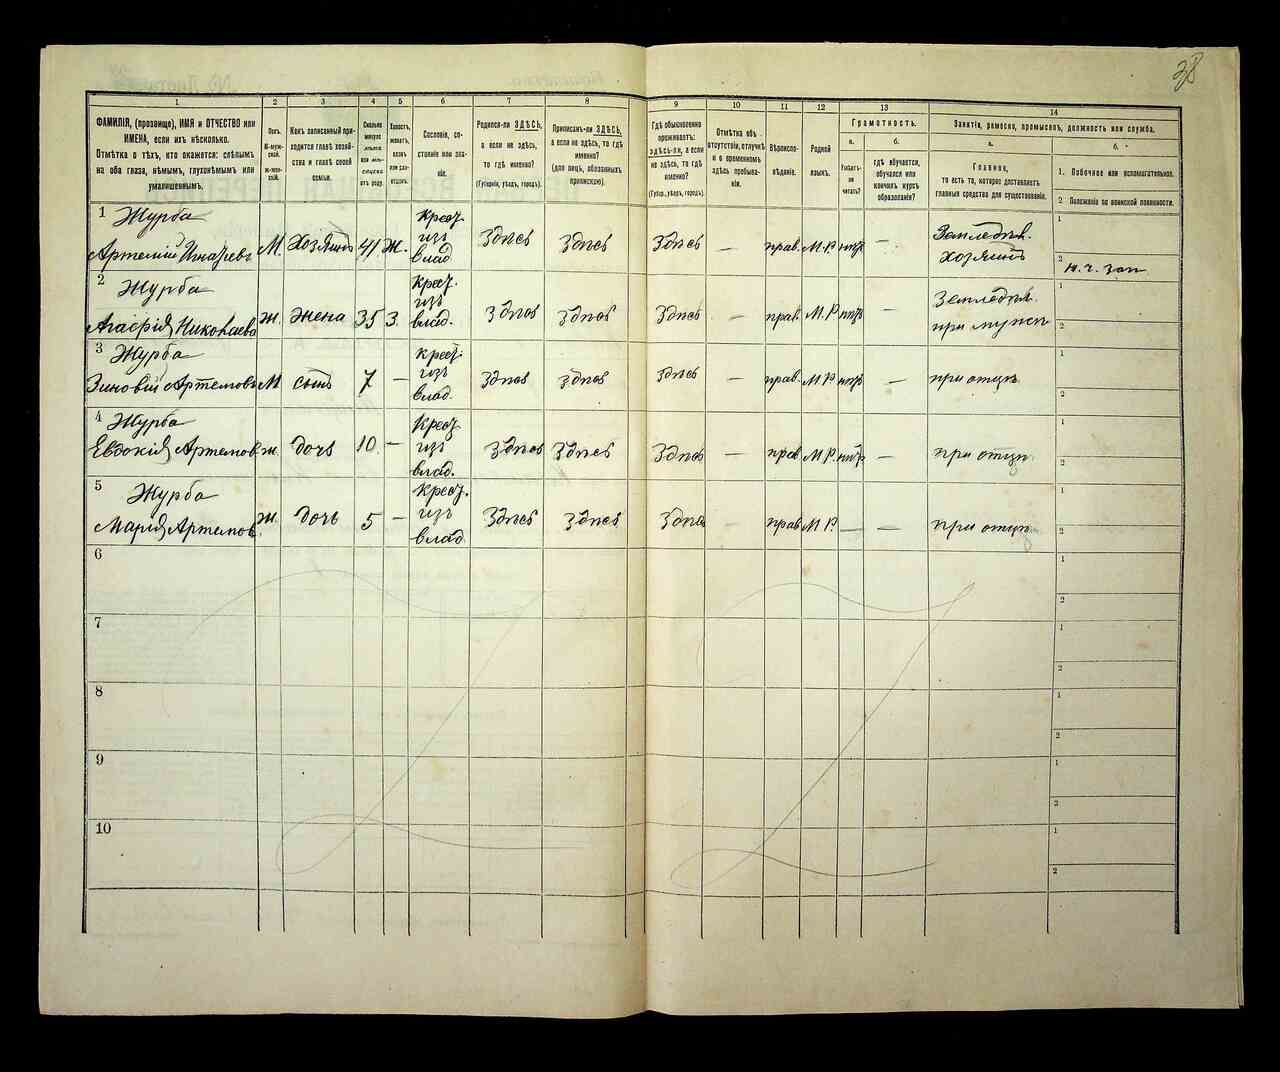 38
1 2 3 4 5 6 7 8 9 10 11 12 13 14
ФАМИЛІЯ, (прозвище), ИМЯ и ОТЧЕСТВО или
ИМЕНА, если ихъ нѣсколько.
Отмѣтка о тѣхъ, кто окажется: слѣпымъ
на оба глаза, нѣмымъ, глухонѣмымъ или
умалишеннымъ.
Полъ.
М-мужской.
Ж-женскій.
Какъ записанный приходится главѣ хозяйства и главѣ своей
семьи.
Сколько
минуло
лѣтъ
или мѣсяцевъ
отъ роду.
Холостъ,
женатъ,
вдовъ
или разведенъ.
Сословіе, состояніе или званіе.
Родился-ли ЗДѢСЬ,
а если не здѣсь,
то гдѣ именно?
(Губернія, уѣздъ, городъ).
Приписанъ-ли ЗДѢСЬ,
а если не здѣсь, то гдѣ
именно?
(для лицъ, обязанныхъ
припискою).
Гдѣ обыкновенно
проживаетъ:
ЗДѢСЬ-ли, а если
не здѣсь, то гдѣ
именно?
(Губер., уѣздъ, городъ).
Отмѣтка объ
отсутствіи, отлучкѣ
и о временномъ
здѣсь пребываніи.
Вѣроисповѣданіе.
Родной
языкъ.
Грамотность.
а.
Умѣетъ-ли
читать?
б.
гдѣ обучается,
обучался или
кончилъ курсъ
образованія?
Занятія, ремесло, промыселъ, должность или служба.
а.
Главное,
то есть то, которое доставляетъ
главныя средства для существованія.
б.
1. Побочное или вспомогательное.
2 Положеніе по воинской повинности.
1 Журба
Артемій Игнатьевъ М. Хозяинъ 41 Ж. Крест. изъ влад. Здѣсь Здѣсь Здѣсь — прав. М.Р. нѣтъ — Земледѣл. хозяинъ
1
2 н.ч. зап
2 Журба
Агафія Николаева Ж. Жена 35 З. Крест. изъ влад. Здѣсь Здѣсь Здѣсь — прав. М.Р. нѣтъ — Земледѣл. при мужѣ
1
2
3 Журба
Зиновій Артемовъ М сынъ 7 — крест. изъ влад. Здѣсь Здѣсь Здѣсь — прав. М.Р. нѣтъ — при отцѣ
1
2
4 Журба
Евдокія Артемов ж. дочь 10 — Крест. изъ влад. Здѣсь Здѣсь Здѣсь — прав. М.Р. нѣтъ — при отцѣ
1
2
5 Журба
Марія Артемов Ж. дочь 5 — Крест. изъ влад. Здѣсь Здѣсь Здѣсь — прав М.Р. — — при отцѣ
1
2
6
1
2
7
1
2
8
1
2
9
1
2
10
1
2